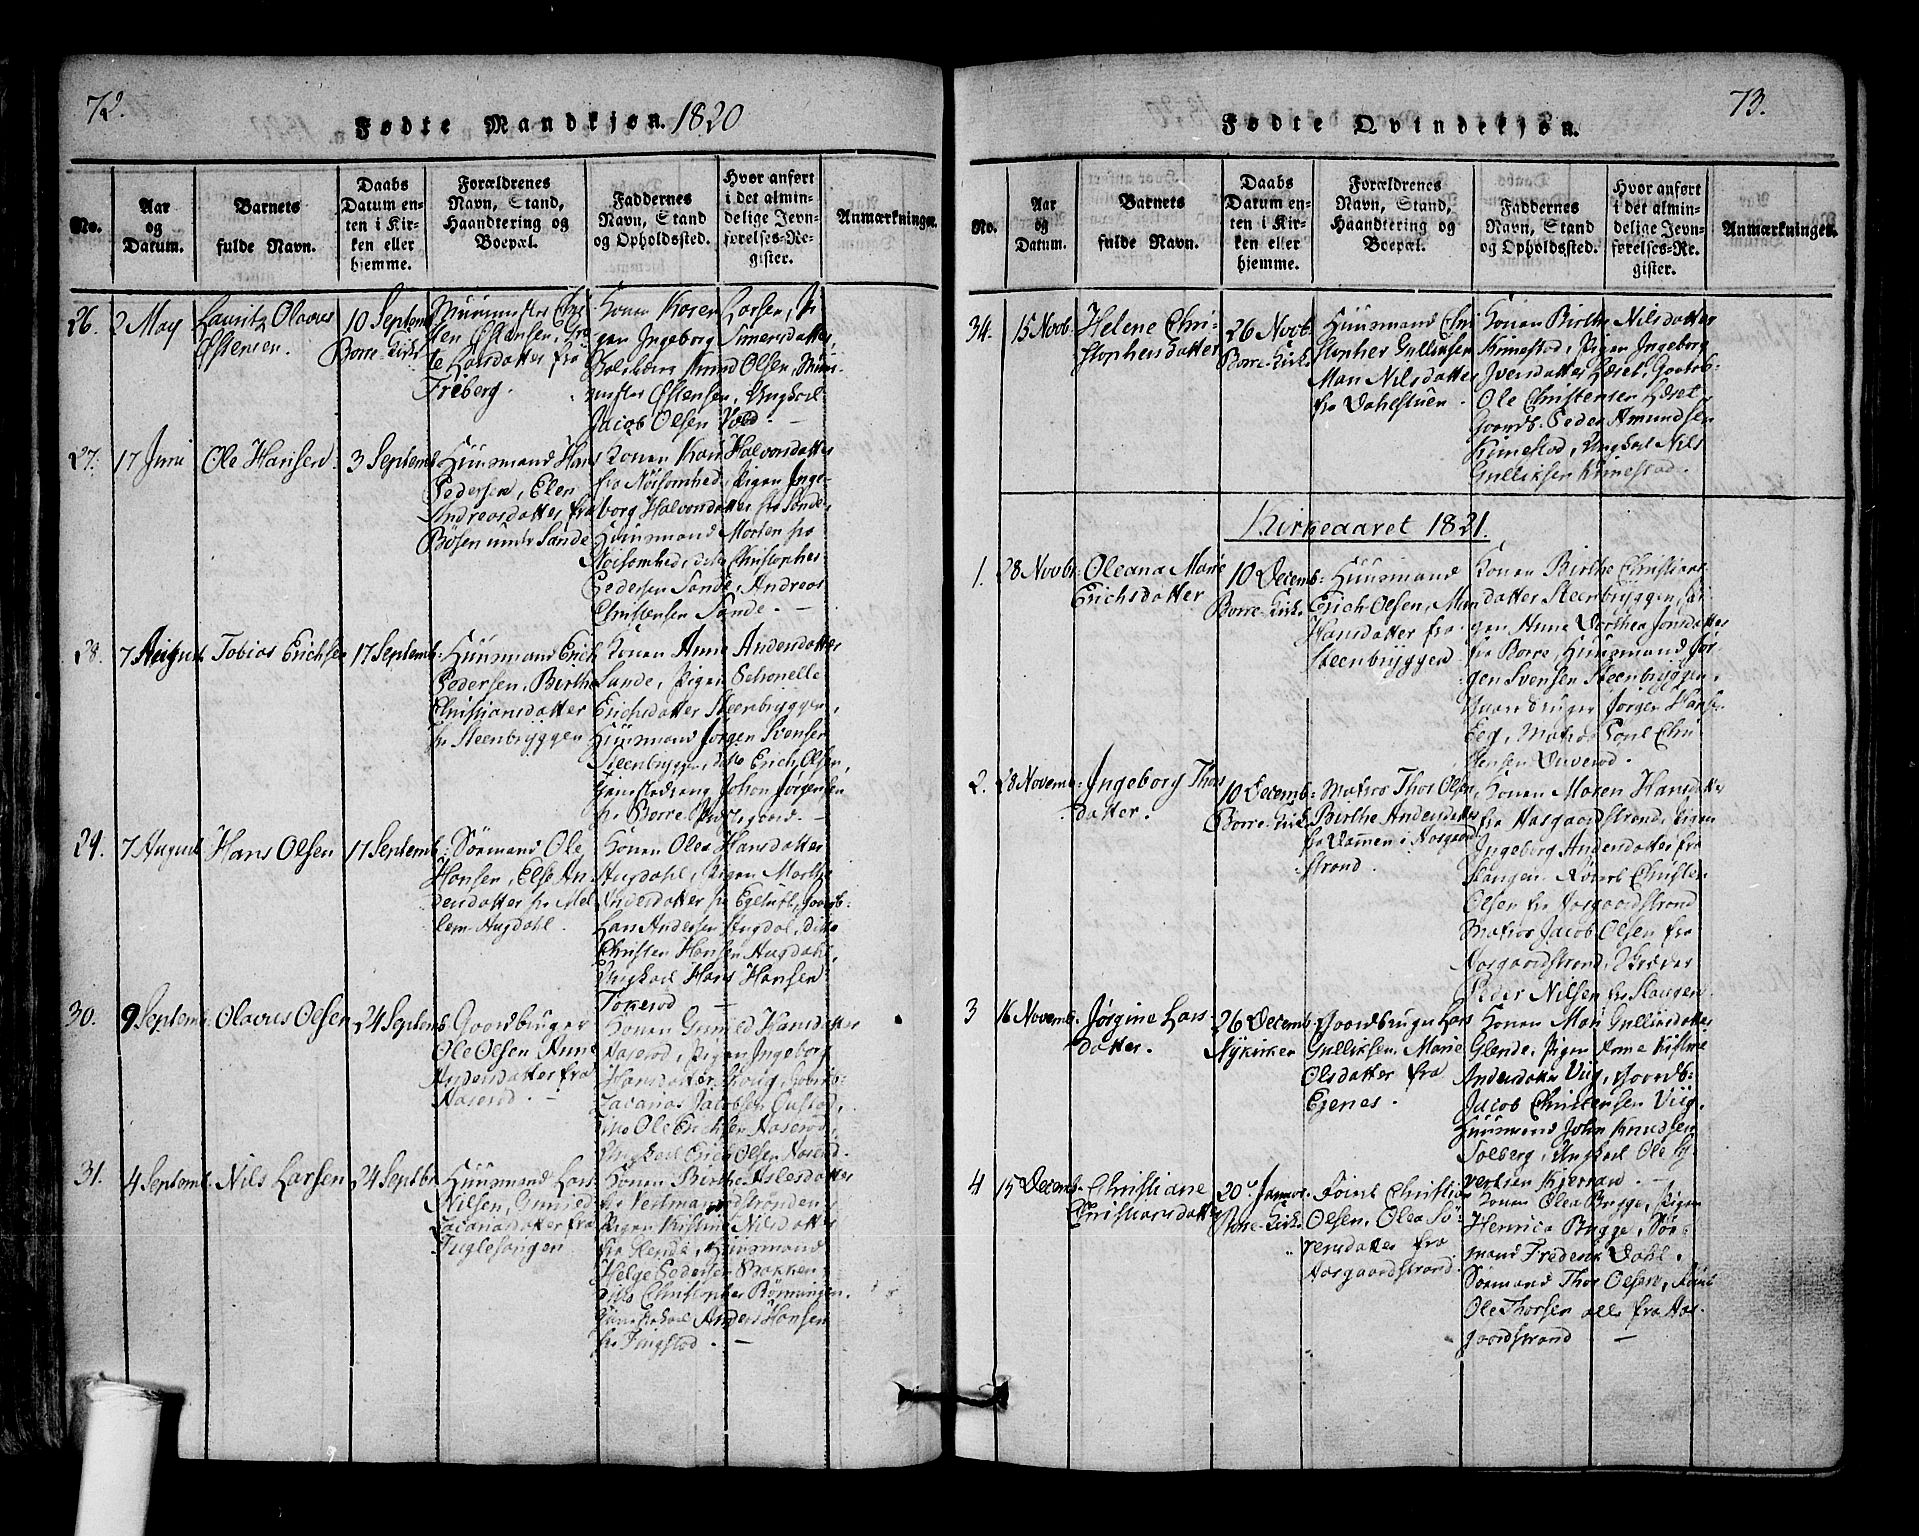 72.
Fødte Mandkjøn. 1820
No.
Aar og Datum.
Barnets fulde Navn.
Daabs Datum enten i Kirken eller hjemme.
Forældrenes Navn, Stand, Haandtering og Boepæl.
Faddernes Navn, Stand og Opholdssted.
Hvor anført i det almindelige Jevnførelses-Register.
Anmærkninger.
26.
2 May
Lauritz Olavus
Estensen.
10 Septemb
Borre-Kirke
Este Larsdatter fra
Treberg.
Konen Karen Larsen, Pi-
gen Ingeborg Simersdatter,
Knud Olsen,
Estensen, Ungkarl
Jacob Olsen Vold.
27.
17 Juni
Ole Hansen
3 Septemb
Huusmand Hans
Pedersen, Elen
Andreasdatter fra
Bøsen under Sande
Konen Kari Halvorsdatter
fra Nøisomhed, Pigen Inge-
borg Halvorsdatter fra Sande,
Huusmand Morten fra
Nøisomhed, ditto Christopher
Pedersen Sande, Andreas
Christensen Sande. —
28.
7 August
Tobias Erichsen
17 Septemb:
Huusmand Erich
Pedersen, Birthe
Christiansdatter
fra Steenbryggen
Konen Anne Andersdatter
Sande, Pigen Schonelle
Erichsdatter Steenbryggen,
Huusmand Jørgen Svensen
Steenbrygge, ditto Erich Olsen,
Tjenestedreng Johan Jørgensen
fra Borre Præstegaard. —
29.
7 August
Hans Olsen
17 Septemb:
Sørmand Ole
Hansen, Else An-
dersdatter fra Mel-
lem-Augdahl.
Konen Olea Hansdatter
Augdahl, Pigen Marthe
Andersdatter fra Egeluft, Gaardb-
Lars Andersen Augdal, ditto
Christen Hansen Augdahl,
Ungkarl Hans Hansen
Tokerød —
30.
9 Septemb.
Olavus Olsen
24 Septemb
Gaardbruger
Ole Olsen Anne
Andersdatter fra
Aaserød. —
Konen Gunild Hansdatter
Aaserød, Pigen Ingeborg
Hansdatter Skoug, Gaardb:
Zacarias Jacobsen Gustad,
ditto Ole Erichsen Aaserød,
Ungkarl Erich Olsen Aaserød
31.
4 Septemb.
Nils Larsen
24 Septbr
Huusmand Lars
Nilsen, Gunild
Zacariasdatter fra
Fuglesangen
Konen Birthe Aslesdatter
fra Vestmandstrønden,
Pigen Kirstine Nilsdatter
fra Glende, Huusmand
Helge Pedersen Bakken,
ditto Christopher Rønningen.
Tjenestekarl Anders Hansen
fra Fingstad. —
73.
Fødte Qvindekjøn.
No.
Aar og Datum.
Barnets fulde Navn.
Daabs Datum enten i Kirken eller hjemme.
Forældrenes Navn, Stand, Haandtering og Boepæl.
Faddernes Navn, Stand og Opholdssted.
Hvor anført i det almindelige Jevnførelses-Register.
Anmærkninger.
34.
15 Novb.
Helene Chri-
stophersdatter
26 Novb.
Borre-Kirke
Huusmand Chri
stopher Gulliksen
Mari Nilsdatter
fra Dahlstuen.
Konen Birthe Nilsdatter
Kimestad, Pigen Ingeborg
Iversdatter Læset, Gaardb-
Ole Christensen Læset,
Gaardb. Peder Amundsen
Kimestad, Ungkarl Nils
Gulliksen Kimestad.
Kirkeaaret 1821.
1.
28 Novbr.
Oleana Marie
Erichsdatter
10 Decemb:
Borre-Kirke
Huusmand
Erich Olsen, Mari
Hansdatter fra
Steenbryggen
Konen Birthe Christians
datter Steenbryggen, Pi-
gen Anne Dorthea Jonsdatter
fra Borre, Huusmand Jør-
gen Svensen Steenbryggen,
Gaardbruger Jørgen Hansen
Eeg, Matros Poul Chri
stensen Duverød.
2.
28 Novemb.
Ingeborg Thors
datter.
10 Decemb:
Borre-Kirke
Matros Thor Olsen
Birthe Andersdatter
fra Dammen i Aasgaard
strand.
Konen Maren Hansdatter
fra Aasgaardstrand, Pigen
Ingeborg Andersdatter fra
Slangen. Christen
Olsen fra Aasgaardstrand
Matros Jacob Olsen fra
Aasgaardstrand,
Peder Nilsen fra Slangen.
3
16 Novemb.
Jørgine Lars-
datter.
26 Decemb:
Nykirken
Gaardbruger Lars
Gulliksen, Marie
Olsdatter fra
Egenes.
Konen Mari Gullisdatter
Glende, Pigen Anne Kistine
Andersdatter Viig, Gaardb:
Jacob Christensen Viig,
Huusmand John Knudsen
Solberg, Ungkarl Ole Sy-
vertsen Kjerraad. —
4
15 Decemb.
Christiane
Christiansdatter
20. Januar.
Borre-Kirke
Christian
Olsen, Olea Sø-
rensdatter fra
Aasgaardstrand.
Konen Olea Bugge, Pigen
Henrica Bugge, Sør-
mand Frederik Dahl,
Sørmand Thor Olsen,
Ole Thorsen alle fra Aas-
gaardstrand —